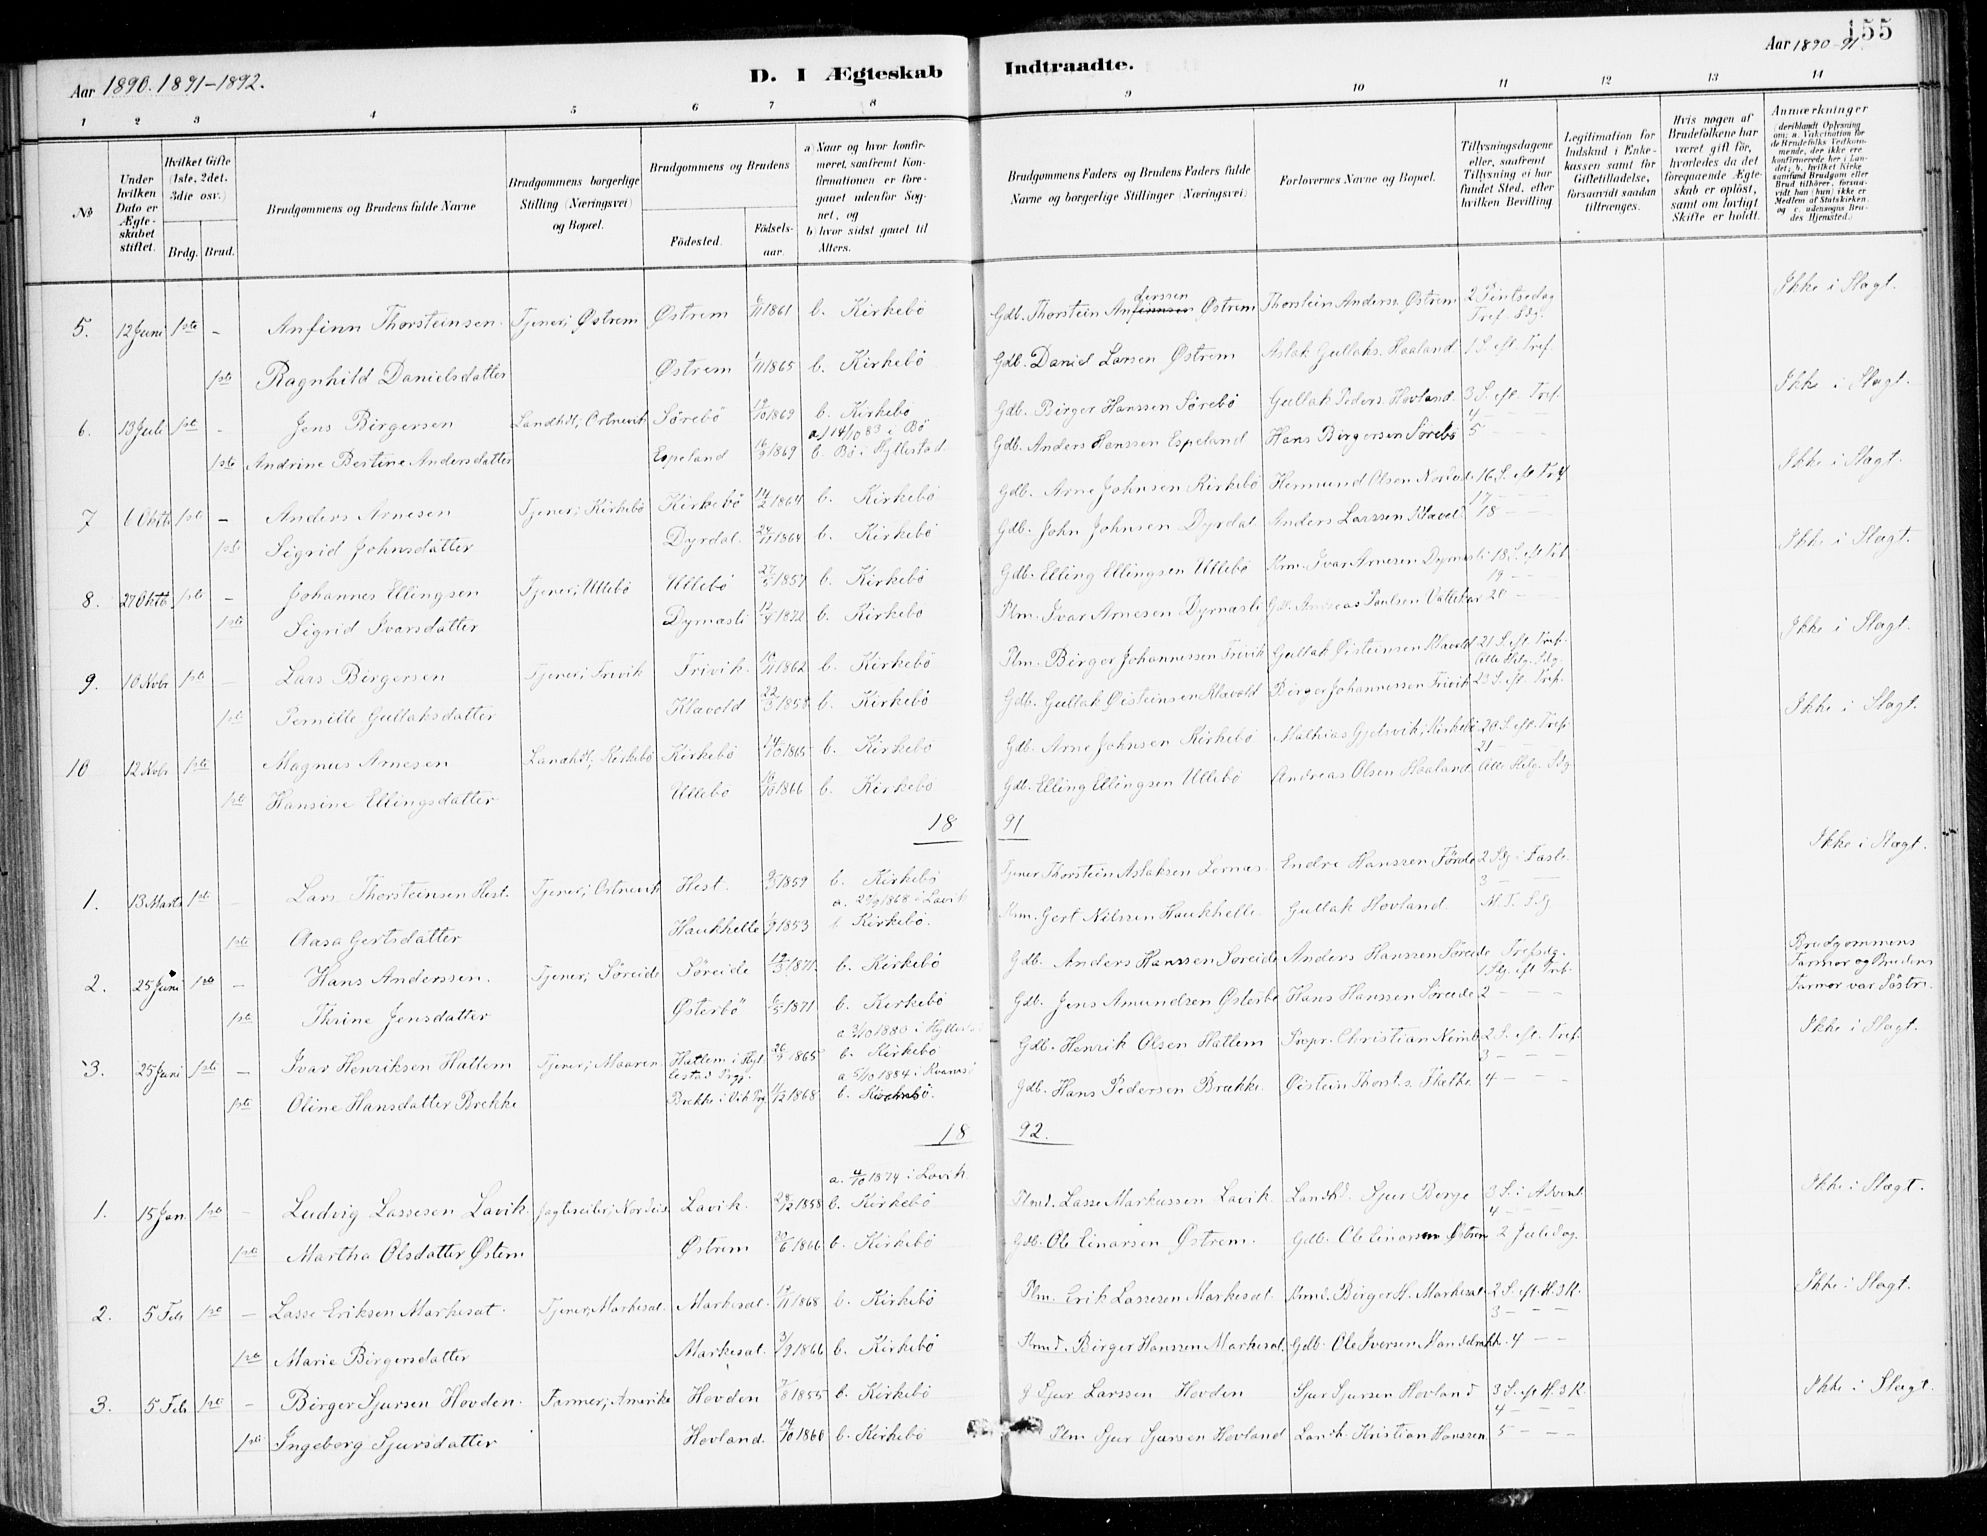 155
Aar 1890. 1891-1892.
D. I Ægteskab
Indtraadte.
Aar 1890-91.
1 2 3 4 5 6 7 8 9 10 11 12 13 14
No
Under hvilken Dato er Ægteskabet stiftet.
Hvilket Gifte (1ste, 2det, 3die osv.)
Brdg. Brud.
Brudgommens og Brudens fulde Navne
Brudgommens borgerlige Stilling (Næringsvei) og Bopæl.
Brudgommens og Brudens
Fødested.
Fødselsaar.
a) Naar og hvor konfirmeret, saafremt Konfirmationen er foregaaet udenfor Sognet, og
b) hvor sidst gaaet til Alters.
Brudgommens Faders og Brudens Faders fulde Navne og borgerlige Stillinger (Næringsvei)
Forlovernes Navne og Bopæl.
Tillysningsdagene eller, saafremt Tillysning ei har fundet Sted, efter hvilken Bevilling.
Legitimation for Indskud i Enkekassen samt for Giftetilladelse, forsaavidt saadan tiltrænges.
Hvis nogen af Brudefolkene har været gift før, hvorledes da det foregaaende Ægteskab er opløst, samt om lovligt Skifte er holdt.
Anmærkninger
5. 12 Juni 1ste - Anfinn Thorsteinsen Tjener; Østrem Østrem 1861 b. Kirkebö Gdb. Thorstein Anfinnsen derssen Østrem Thorstein Anders. Østrem 2 Pintsedag Ikke i Slægt.
Tref. Sdg.
1ste Ragnhild Danielsdatter Østrem 1865 b. Kirkebö Gdb. Daniel Larsen Østrem Aslak Gullaks. Haaland 1 S. eft. Tref.
6. 13 Juli 1ste - Jens Birgersen Landhdl; Ortnevik Sörebö 1869 b. Kirkebö Gdb. Birger Hanssen Sörebö Gullak Peders. Hovland 3 S. eft. Tref. Ikke i Slægt.
4 -
a) 14/10 83 i Bö
1ste Andrine Bertine Andersdatter Espeland 1869 b. Bö i Hyllestad Gdb. Anders Hanssen Espeland Hans Birgersen Sörebö 5 - - -
7 6 Oktb 1ste - Anders Arnesen Tjener; Kirkebö Kirkebö 14/2 1864 b. Kirkebö Gdb. Arne Johnsen Kirkebö Hermund Olsen 16 S. eft Tref Ikke i Slægt.
17 - - -
1ste Sigrid Johnsdatter Dyrdal 24/11 1864 b. Kirkebö Gdb. John Johnsen Dyrdal Anders Larssen 18 - - -
8. 27 Oktb 1ste - Johannes Ellingsen Tjener; Ullebö Ullebö 1857 b. Kirkebö Gdb. Elling Ellingsen Ullebö Krm. Ivar Arnesen Dyrnasli 18 S. eft Tref Ikke i Slægt.
19 - -
1ste Sigrid Ivarsdatter Dyrnasli 1872 b. Kirkebö Plm. Ivar Arnesen Dyrnasli Gdb. Andreas Paulsen 20 - -
9. 10 Novbr 1ste - Lars Birgersen Tjener; Trivik Trivik 1862 b. Kirkebö Plm. Birger Johannessen Trivik Gullak Øisteinsen Klævold 21 S. eft. Tref. Ikke i Slægt.
Alle Helg. Sdg.
1ste Pernille Gullaksdatter Klævold 1858 b. Kirkebö Gdb. Gullak Øisteinsen Klævold Birger Johannessen Trivik 23 S. eft. Tref.
10 12 Novbr 1ste - Magnus Arnesen Landhdl; Kirkebö Kirkebö 1865 b. Kirkebö Gdb. Arne Johnsen Kirkebö Mathias Gjelsvik; Kirkebö 20 S. eft. Tref. Ikke i Slægt.
21 -
1ste Hansine Ellingsdatter Ullebö 1866 b. Kirkebö Gdb. Elling Ellingsen Ullebö Andreas Olsen Haaland Alle Helg. Sdg
18 91
1. 13 Marts 1ste - Lars Thorsteinsen Hest. Tjener; Ortnevik Hest. 1859 b. Kirkebö Tjener Thorstein Aslaksen Endre Hanssen Förde 2 Sdg i Faste Ikke i Slægt.
3 - -
a. 1868 i Lavik
1ste Aasa Gertsdatter Haukhelle 1853 b Kirkebö. Krm. Gert Nilssen Haukhelle. Gullak Hovland M. T. Sdg
2. 25 Juni 1ste - Hans Anderssen. Tjener; Söreide Söreide 1871. b. Kirkebö Gdb. Anders Hanssen Söreide Anders Hanssen Söreide Trefsdg. Brudgommens Farmor og Brudens Farmor var Söstre.
1 Sdg. eft Tref.
1ste Thrine Jensdatter Østerbö 1871. b. Kirkebö Gdb. Jens Amundsen Østerbö Hans Hanssen Söreide 2 - - -
a. 3/10 1880 i Hyllestad
3. 25 Juni 1ste - Ivar Henriksen Hatlem Tjener; Maaren Hatlem i Hyllestad Prgj. 1865 b. Kirkebö Gdb. Henrik Olsen Hatlem Christian 2 S. eft. Tref. Ikke i Slægt.
3 - - -
a. 5/10 1884 i
1ste Oline Hansdatter Brekke Brekke i Vik Prg 1868. b. Kirkebö. Gdb. Hans Pedersen Brække. Øistein Thorst.s. 4 - - -
18 92.
a. 4/10 1874 i Lavik
1. 15 Jan. 1ste - Ludvig Lassesen Lavik. Jagteseiler; Lavik. 28/12 1858 b. Kirkebö Plmd. Lasse Markussen Lavik. Landhd. Sjur Berge 3 S. i Advent Ikke i Slægt.
4 - - -
1ste Martha Olsdatter Østrem Østrem 1866 b. Kirkebö Gdb. Ole Einarsen Østrem. Gdb. Ole Einarsen Østrem 2 Juledag.
2. 5 Feb 1ste - Lasse Eriksen Markesæt. Tjener; Markesæt. Markesæt. 1868 b. Kirkebö Plm. Erik Lassesen Markesæt. Krmd. Birger H. Markesæt 2 S. eft. H. 3 K. Ikke i Slægt.
3 - - -
1ste Marie Birgersdatter Markesæt. 1866 b. Kirkebö Plmd. Birger Hanssen Markesæt. Gdb. Ole Iversen 4 - -
3. 5 Feb 1ste - Birger Sjursen Hovden. Farmer; Amerika Hovden 1855 b. Kirkebö G Sjur Larssen Hovden Sjur Sjursen Hovland 3 S. eft H. 3 K Ikke i Slægt.
4 - - -
1ste Ingeborg Sjursdatter Hovland. 1860 b. Kirkebö Plm Sjur Sjursen Hovland Kristian Hanssen 5 - - -